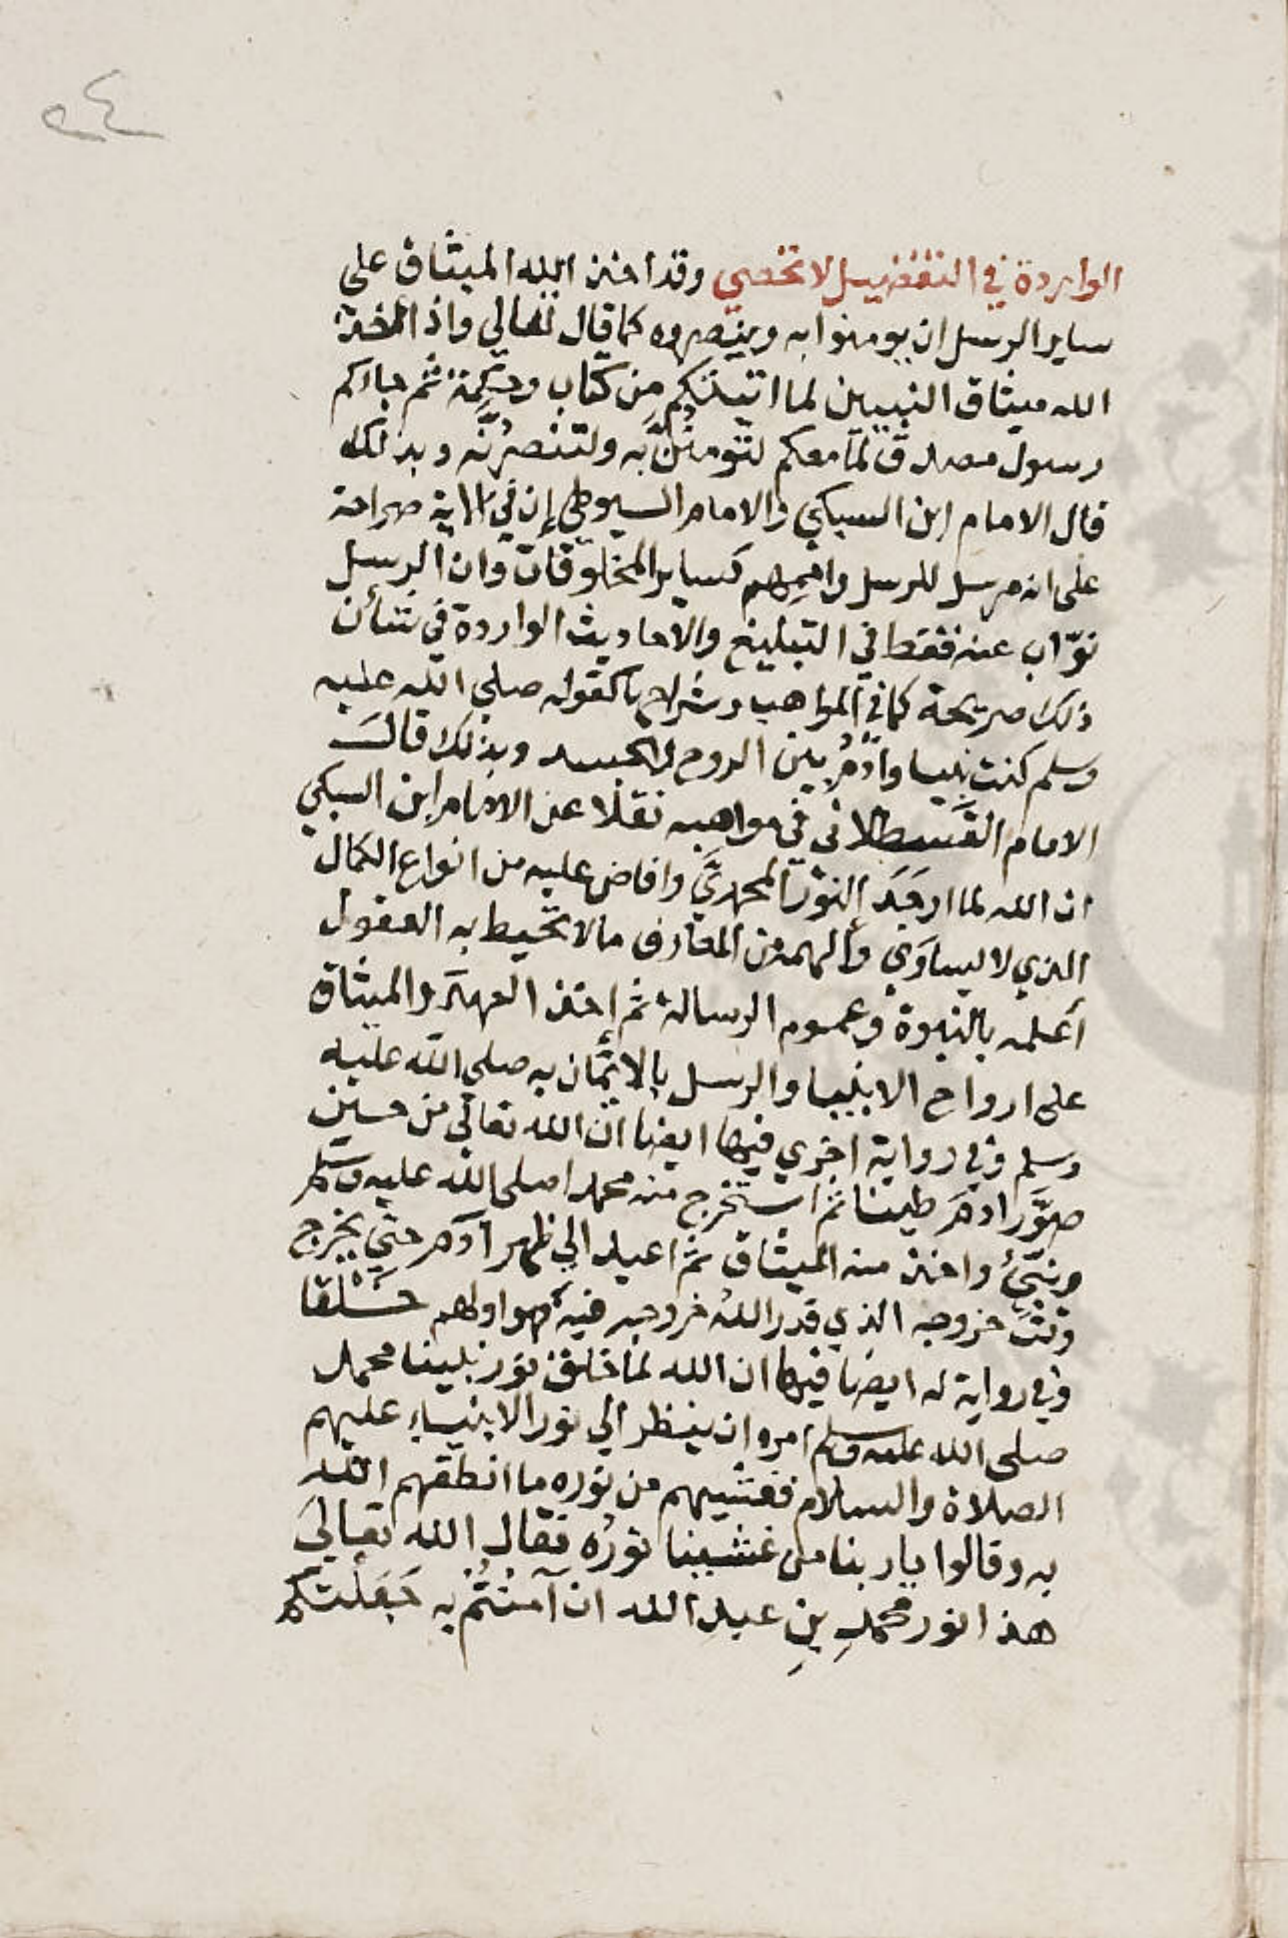 ٢٤
الواردة في التفضيل لا تحصى وقد اخذ الله الميثاق على
ساير الرسل ان يومنوا به وينصروه كما قال تعالي واذ اخذ
الله ميثاق النبيين لما اتيتكم من كتاب وحكمة ثم جاءكم
رسول مصدق لما معكم لتومنن به ولتنصرنه وبذلك
قال الامام ابن السبكي والامام السيوطي إن في الاية صراحة
على انه مرسل للرسل واممهم كساير المخلوقات وان الرسل
نوّاب عنه فقط في التبليغ والاحاديث الواردة في شأن
ذلك صريحة كما في المواهب وشراحها كقوله صلى الله عليه
وسلم كنت نبيا وآدمُ بين الروح والجسد وبذلك قال
الامام القسطلاني في مواهبه نقلا عن الامام ابن السبكي
ان الله لما اوجَدَ النورَ المحمديَّ وافاض عليه من انواع الكمال
الذي لا يساوَي وألهمه من المعارف مالا تحيط به العقول
أعلمه بالنبوة وعموم الرسالة ثم اخذ العهدَ والميثاق
على ارواح الانبيا والرسل بالايمان به صلي الله عليه
وسلم وفي رواية اخري فيها ايضا ان الله تعالي من حين
صوَّر ادمَ طينا ثم استخرج منه محمدا صلى الله عليه وسلم
ونبّئ واخذ منه الميثاق ثم اعيد الي ظهر آدم حتي يخرج
وقتَ خروجه الذي قدر اللهُ خروجه فيه فهو اولهم خَلْقا
وفي رواية له ايضا فيها ان الله لما خلق نور نبينا محمد
صلى الله عليه وسلم امره ان ينظر الي نور الانبياء عليهم
الصلاة والسلام فغشيهم من نوره ما انطقهم الله
به وقالوا يا ربنا من غشينا نورُه فقال الله تعالي
هذا نور محمدِ بنِ عبدِ الله ان آمنتُم به جَعَلتكم